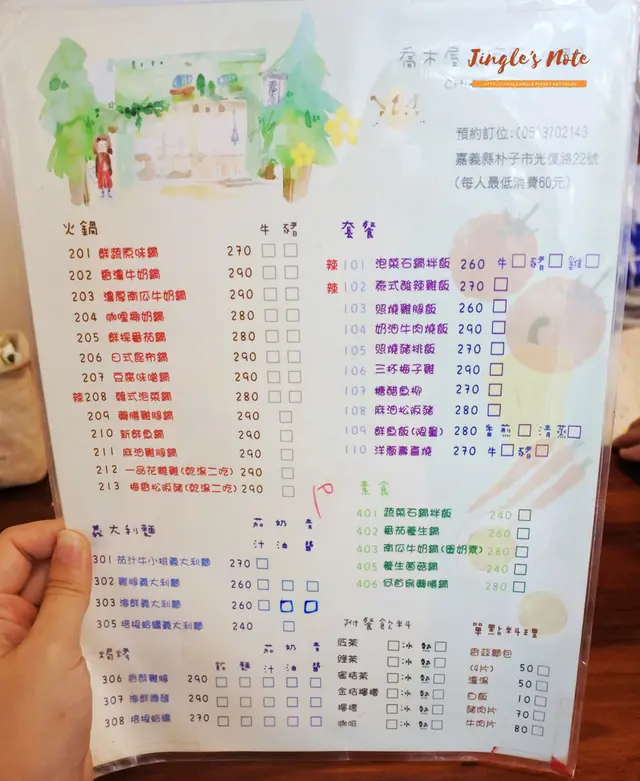 喬木屋
Jingle's Note
預約訂位:(05)3702143
嘉義縣朴子市光復路22號
(每人最低消費60元)
火鍋 牛 豬
201 鮮蔬原味鍋 270
202 香濃牛奶鍋 290
203 濃厚南瓜牛奶鍋 290
204 咖哩椰奶鍋 280
205 鮮採番茄鍋 280
206 日式昆布鍋 290
207 豆腐味噌鍋 290
辣208 韓式泡菜鍋 280
209 養膳雞腿鍋 290
210 新鮮魚鍋 290
211 麻油雞腿鍋 290
212 一品花雕雞(乾濕二吃) 290
213 梅香松阪豬(乾濕二吃) 290
套餐
辣 101 泡菜石鍋拌飯 260 牛 豬 雞
辣 102 泰式酸辣雞飯 270
103 照燒雞腿飯 260
104 奶油牛肉燒飯 290
105 照燒豬排飯 270
106 三杯梅子雞 290
107 糖醋魚柳 270
108 麻油松阪豬 280
109 鮮魚飯(限量) 280 香煎 清蒸
110 洋蔥壽喜燒 270 牛 豬
素食
401 蔬菜石鍋拌飯 240
402 番茄養生鍋 260
403 南瓜牛奶鍋(蛋奶素) 280
405 養生菌菇鍋 240
406 何首烏養膳鍋 280
義大利麵 茄汁 奶油 青醬
301 茄汁牛小排義大利麵 270
302 雞腿義大利麵 260
303 海鮮義大利麵 260
305 培根蛤蠣義大利麵 240
焗烤 飯 麵 茄汁 奶油 青醬
306 香酥雞腿 290
307 海鮮總匯 290
308 培根蛤蠣 270
附餐飲料
紅茶 冰 熱
綠茶 冰 熱
蜜桔茶 冰 熱
金桔檸檬 冰 熱
檸檬 冰 熱
咖啡 冰 熱
單點料理
香蒜麵包
(4片) 50
濃湯 50
白飯 10
豬肉片 70
牛肉片 80